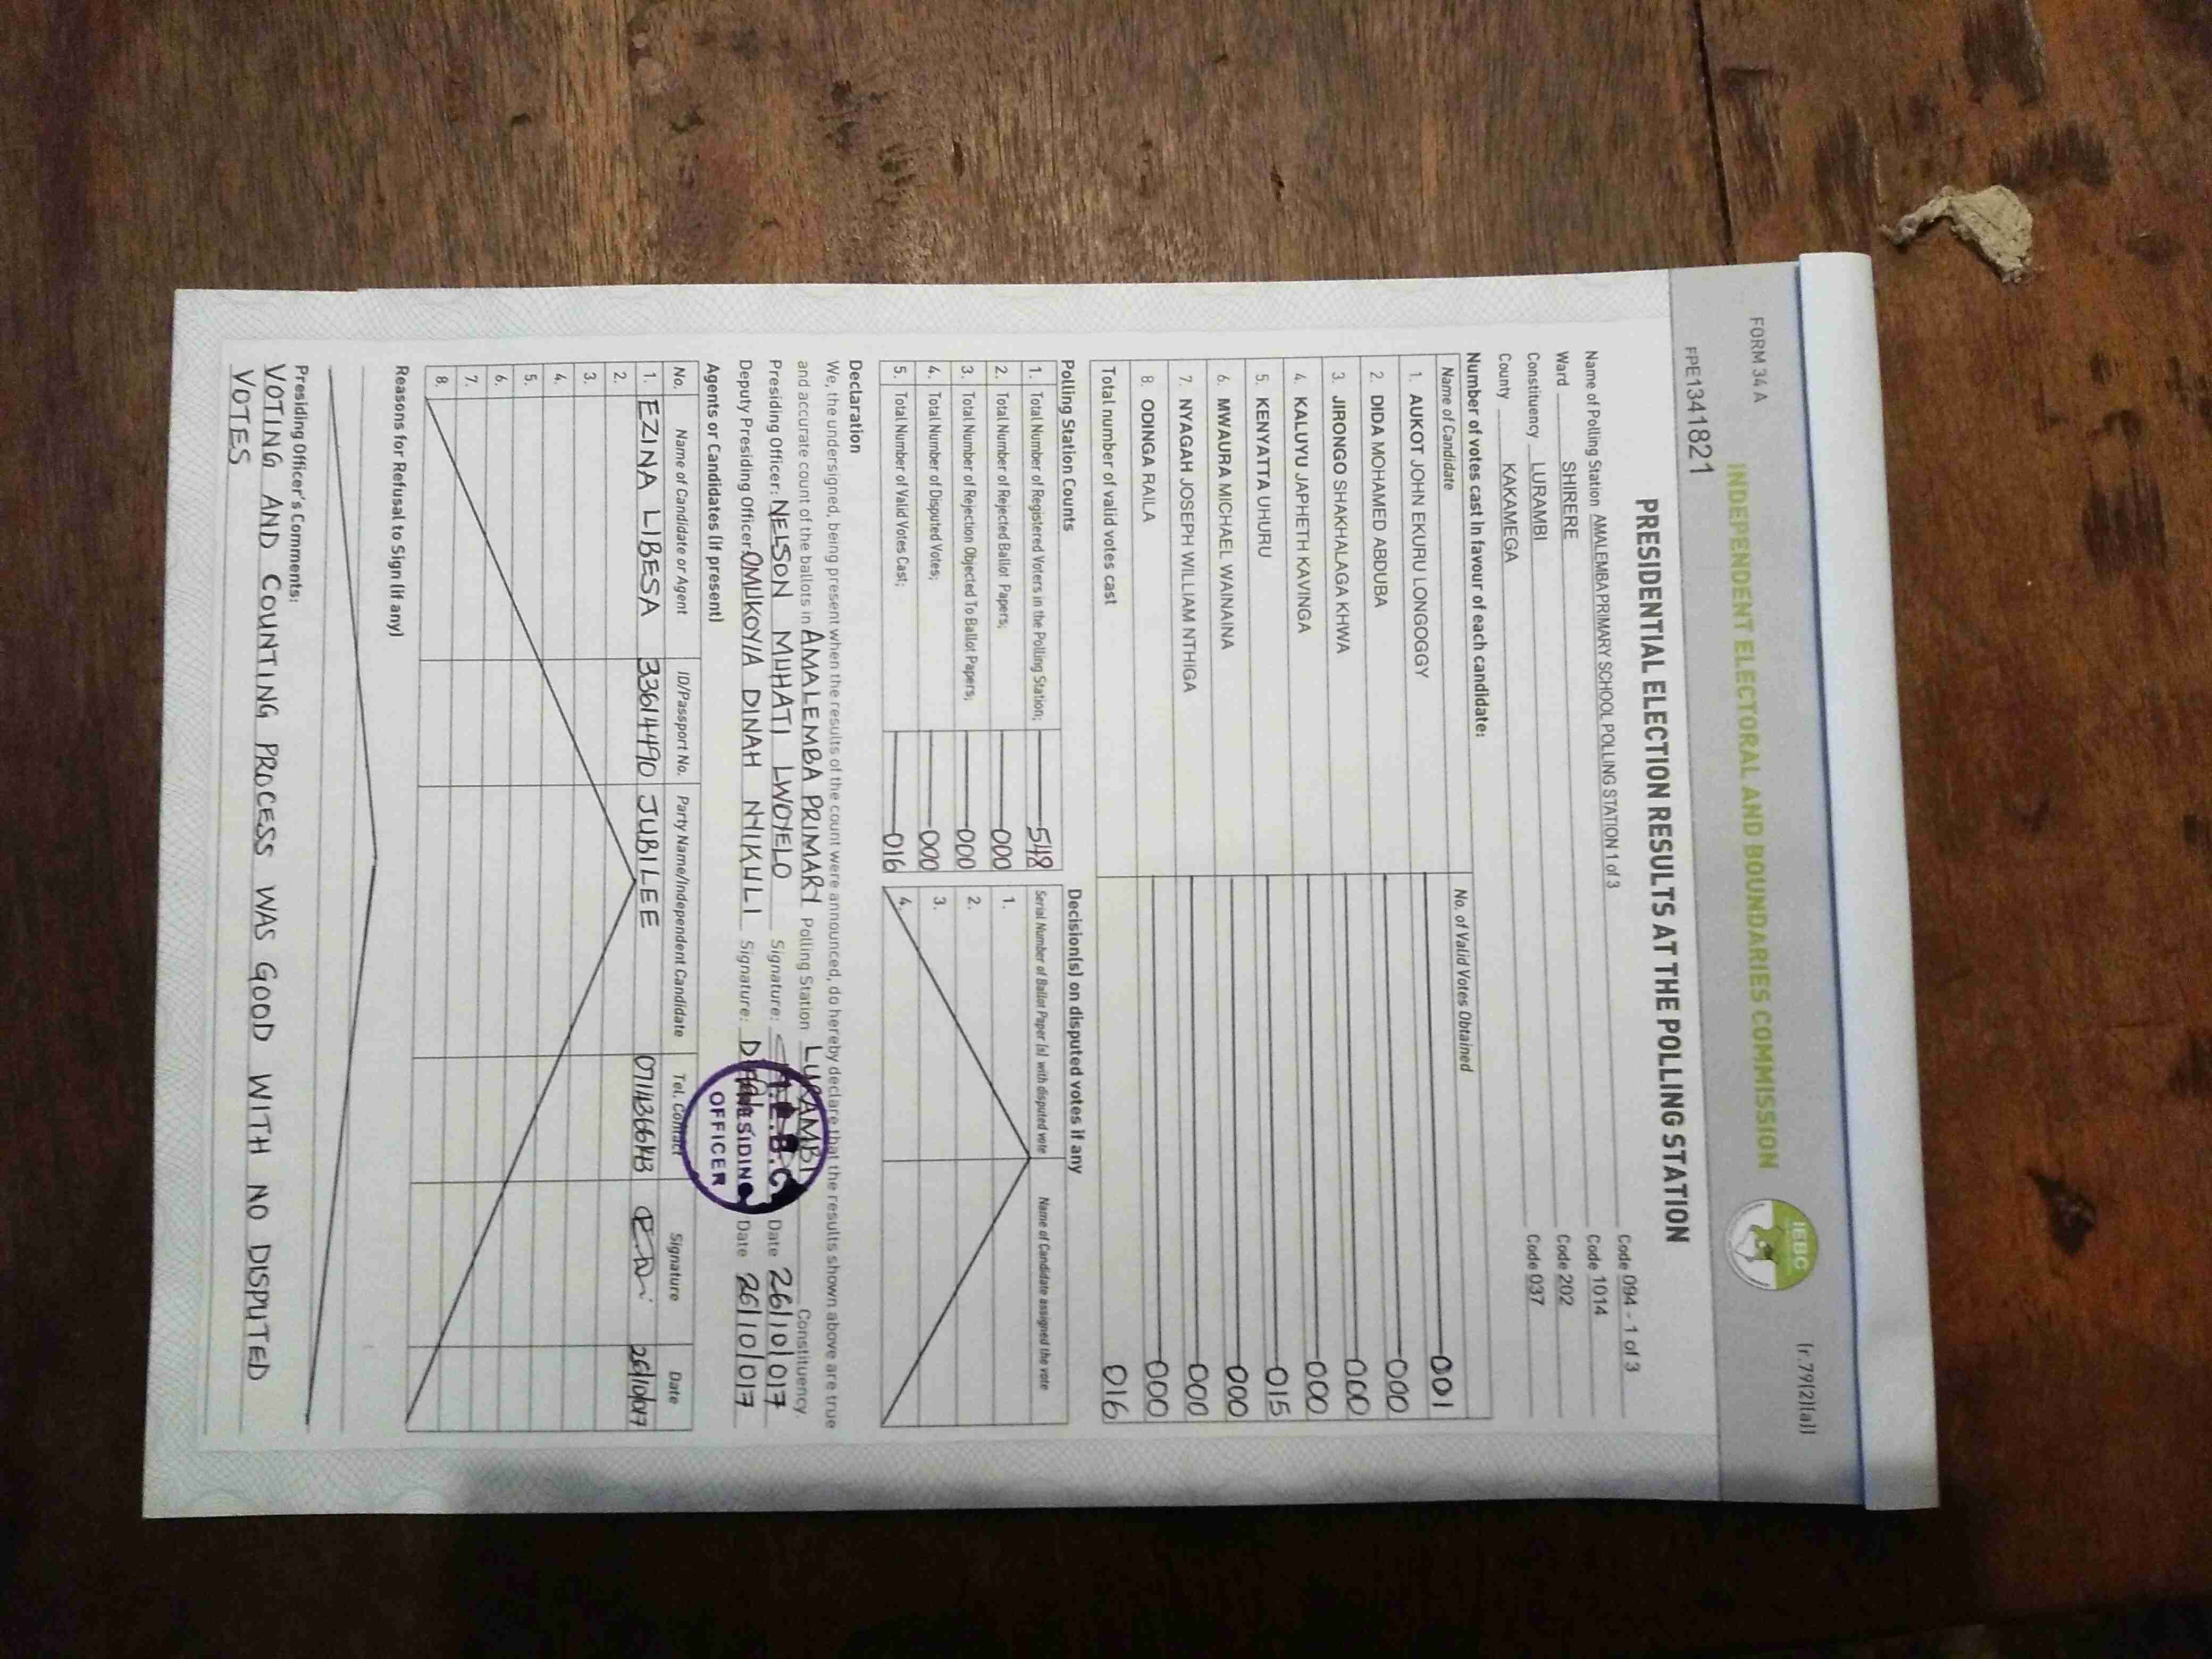 FORM 34 A
[r.79(2)(a)]
INDEPENDENT ELECTORAL AND BOUNDARIES COMMISSION
IEBC
FPE1341821
PRESIDENTIAL ELECTION RESULTS AT THE POLLING STATION
Name of Polling Station AMALEMBA PRIMARY SCHOOL POLLING STATION 1 of 3 Code 094 - 1 of 3
Ward SHIRERE Code 1014
Constituency LURAMBI Code 202
County KAKAMEGA Code 037
Number of votes cast in favour of each candidate:
Name of Candidate No. of Valid Votes Obtained
1. AUKOT JOHN EKURU LONGOGGY 001
2. DIDA MOHAMED ABDUBA 000
3. JIRONGO SHAKHALAGA KHWA 000
4. KALUYU JAPHETH KAVINGA 000
5. KENYATTA UHURU 015
6. MWAURA MICHAEL WAINAINA 000
7. NYAGAH JOSEPH WILLIAM NTHIGA 000
8. ODINGA RAILA 000
Total number of valid votes cast 016
Polling Station Counts
1. Total Number of Registered Voters in the Polling Station; 548
2. Total Number of Rejected Ballot Papers; 000
3. Total Number of Rejection Objected To Ballot Papers; 000
4. Total Number of Disputed Votes; 000
5. Total Number of Valid Votes Cast; 016
Decision(s) on disputed votes if any
Serial Number of Ballot Paper (s) with disputed vote Name of Candidate assigned the vote
1.
2.
3.
4.
Declaration
We, the undersigned, being present when the results of the count were announced, do hereby declare that the results shown above are true
and accurate count of the ballots in AMALEMBA PRIMARY Polling Station LURAMBI Constituency.
Presiding Officer: NELSON MUHATI LWOYELO Signature: Date 26/10/017
Deputy Presiding Officer: OMUKOYIA DINAH NYIKULI Signature: Date 26/10/017
I.E.B.C
PRESIDING
OFFICER
Agents or Candidates (if present)
No. Name of Candidate or Agent ID/Passport No. Party Name/Independent Candidate Tel. Contact Signature Date
1. EZINA LIBESA 33614490 JUBILEE 26/10/017
2.
3.
4.
5.
6.
7.
8.
Reasons for Refusal to Sign (if any)
Presiding Officer's Comments:
VOTING AND COUNTING PROCESS WAS GOOD WITH NO DISPUTED
VOTES